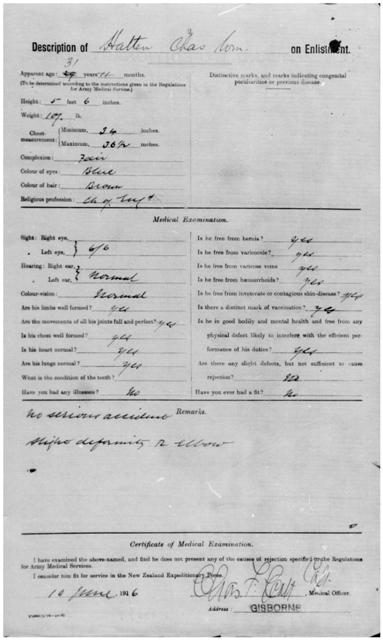 Description of Hatten Chas Wm. on Enlistment.
31
Apparent age: 29 years 11 months.
(To be determined according to the instructions given in the Regulations for Army Medical Service.)
Height: 5 feet 6 inches.
Weight: lb.
Chest-measurement: Minimum, 34 inches.
Maximum, 36½ inches.
Complexion: Fair
Colour of eyes: Blue
Colour of hair: Brown
Religious profession: Ch of Eng
Distinctive marks, and marks indicating congenital
peculiarities or previous disease.
Medical Examination.
Sight: Right eye,
" Left eye, 6/6
Hearing: Right ear,
" Left ear, Normal
Colour-vision: Normal
Are his limbs well formed? yes
Are the movements of all his joints full and perfect? yes
Is his chest well formed? yes
Is his heart normal? yes
Are his lungs normal? yes
What is the condition of the teeth?
Have you had any illnesses? No
Is he free from hernia? yes
Is he free from varicocele? yes
Is he free from varicose veins yes
Is he free from hæmorrhoids? yes
Is he free from inveterate or contagious skin-disease? yes
Is there a distinct mark of vaccination? yes
Is he in good bodily and mental health and free from any
physical defect likely to interfere with the efficient per-
formance of his duties? yes
Are there any slight defects, but not sufficient to cause
rejection?
Have you ever had a fit? No
Remarks.
No serious accident
Slight deformity R elbow
Certificate of Medical Examination.
I have examined the above-named, and find he does not present any of the causes of rejection specified in the Regulations
for Army Medical Services.
I consider him fit for service in the New Zealand Expeditionary Force.
June 1916
Chas F Capt
Medical Officer.
Address: GISBORNE